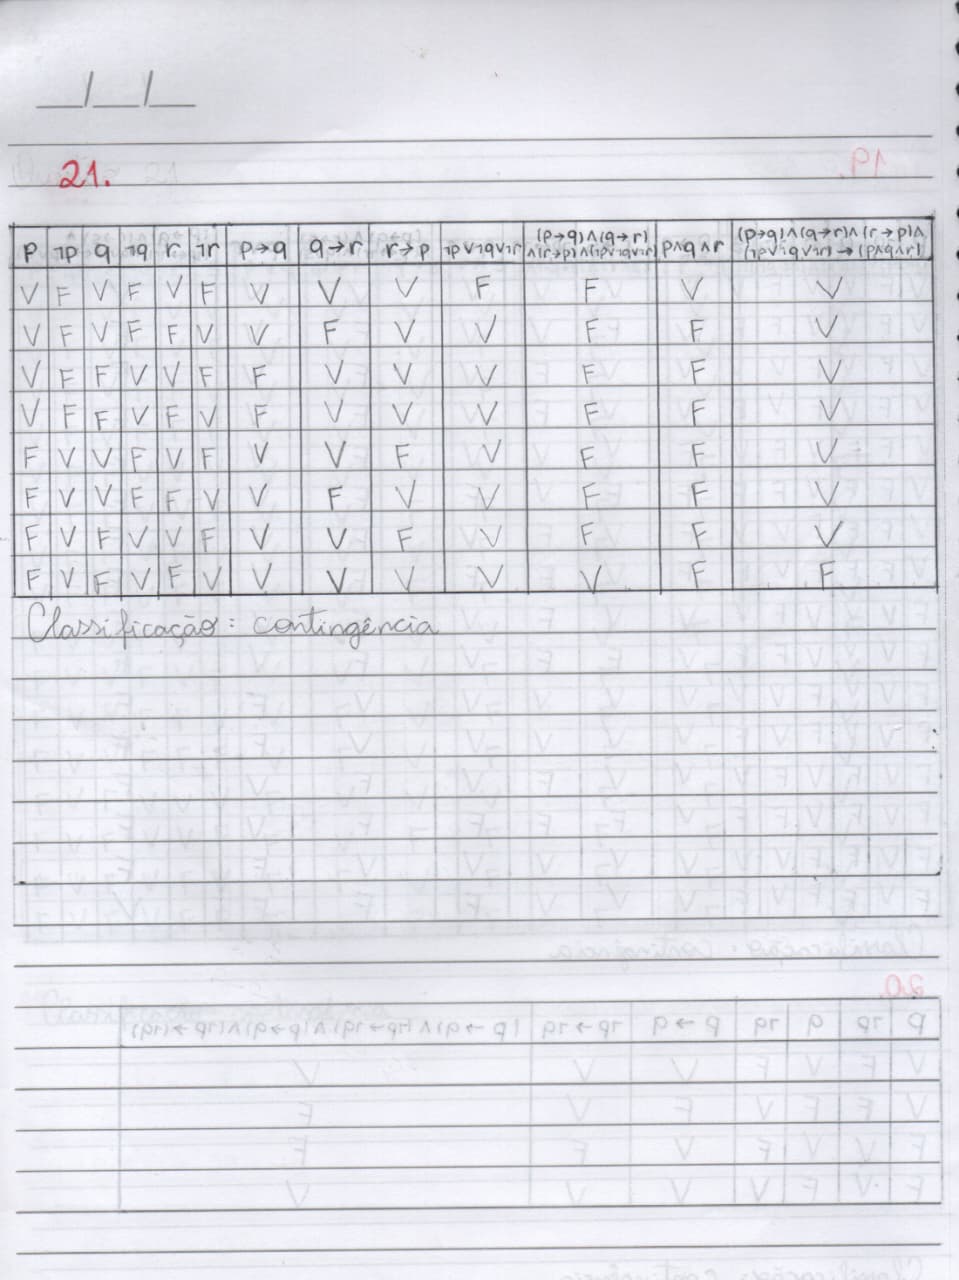 __/__/__
21.
p ¬p q ¬q r ¬r p→q q→r r→p ¬p∨¬q∨¬r (p→q)∧(q→r)∧(r→p)∧(¬p∨¬q∨¬r) p∧q∧r (p→q)∧(q→r)∧(r→p)∧(¬p∨¬q∨¬r)→(p∧q∧r)
V F V F V F V V V F F V V
V F V F F V V F V V F F V
V F F V V F F V V V F F V
V F F V F V F V V V F F V
F V V F V F V V F V F F V
F V V F F V V F V V F F V
F V F V V F V V F V F F V
F V F V F V V V V V V F F
Classificação: contingência